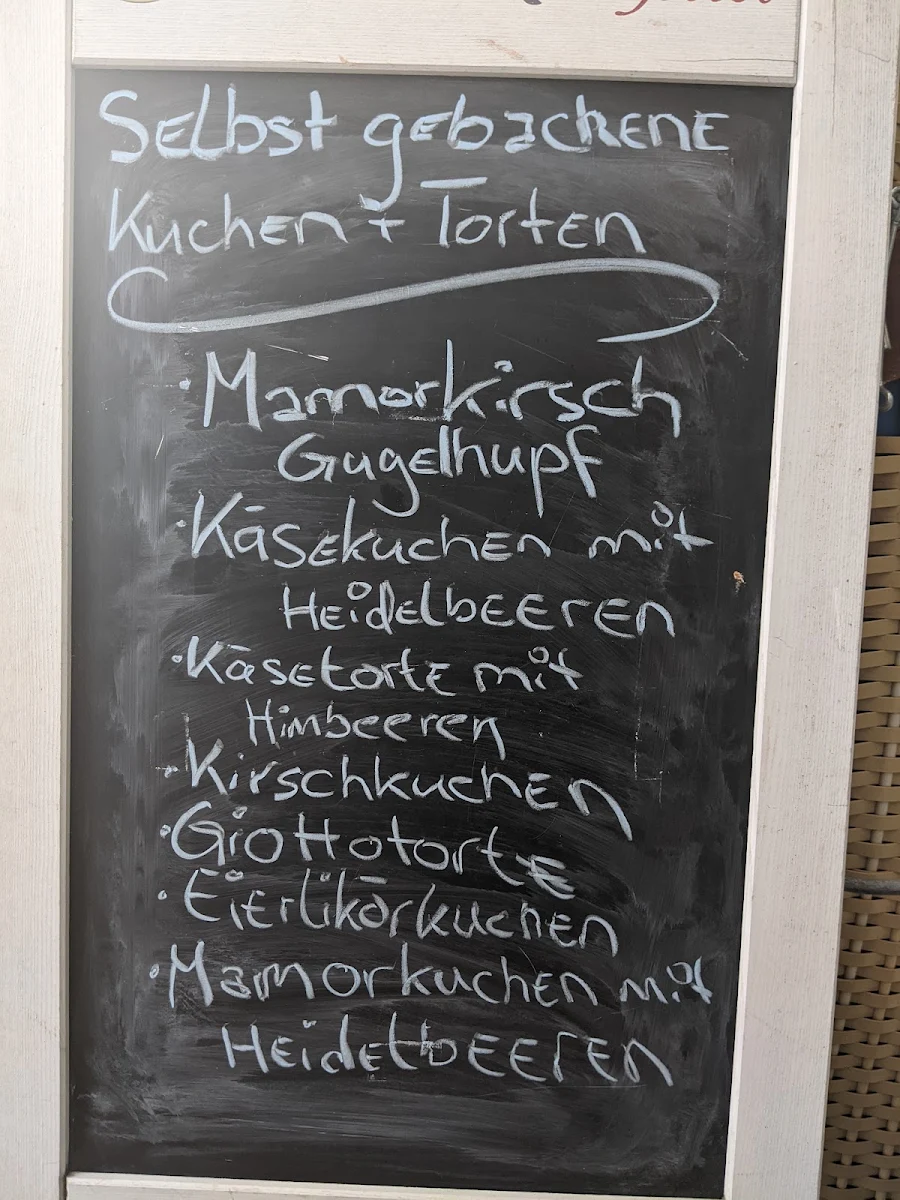 Selbst gebackene
Kuchen + Torten
· Mamorkirsch
Gugelhupf
· Käsekuchen mit
Heidelbeeren
· Käsetorte mit
Himbeeren
· Kirschkuchen
· Giottotorte
· Eierlikörkuchen
· Mamorkuchen mit
Heidelbeeren